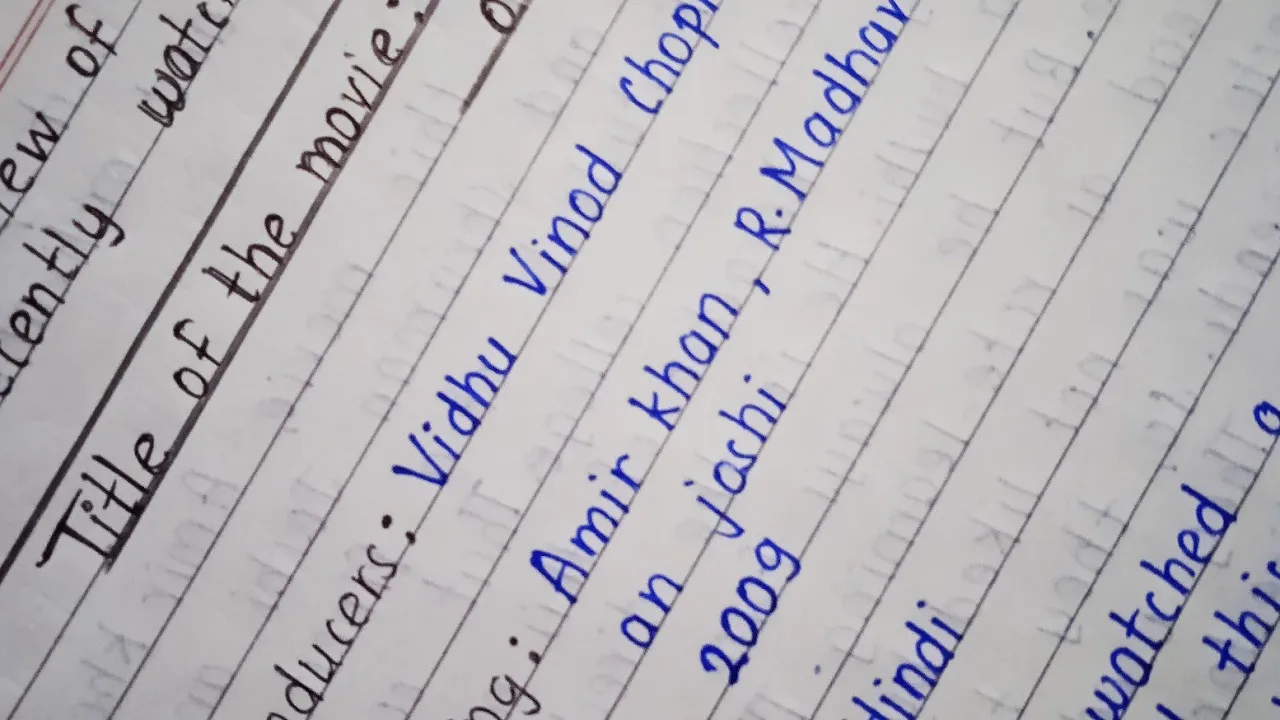 ew of
cently watc
Title of the movie:
ducers: Vidhu Vinod Chop
ng: Amir khan, R. Madhav
an joshi
2009
Hindi
watched
this